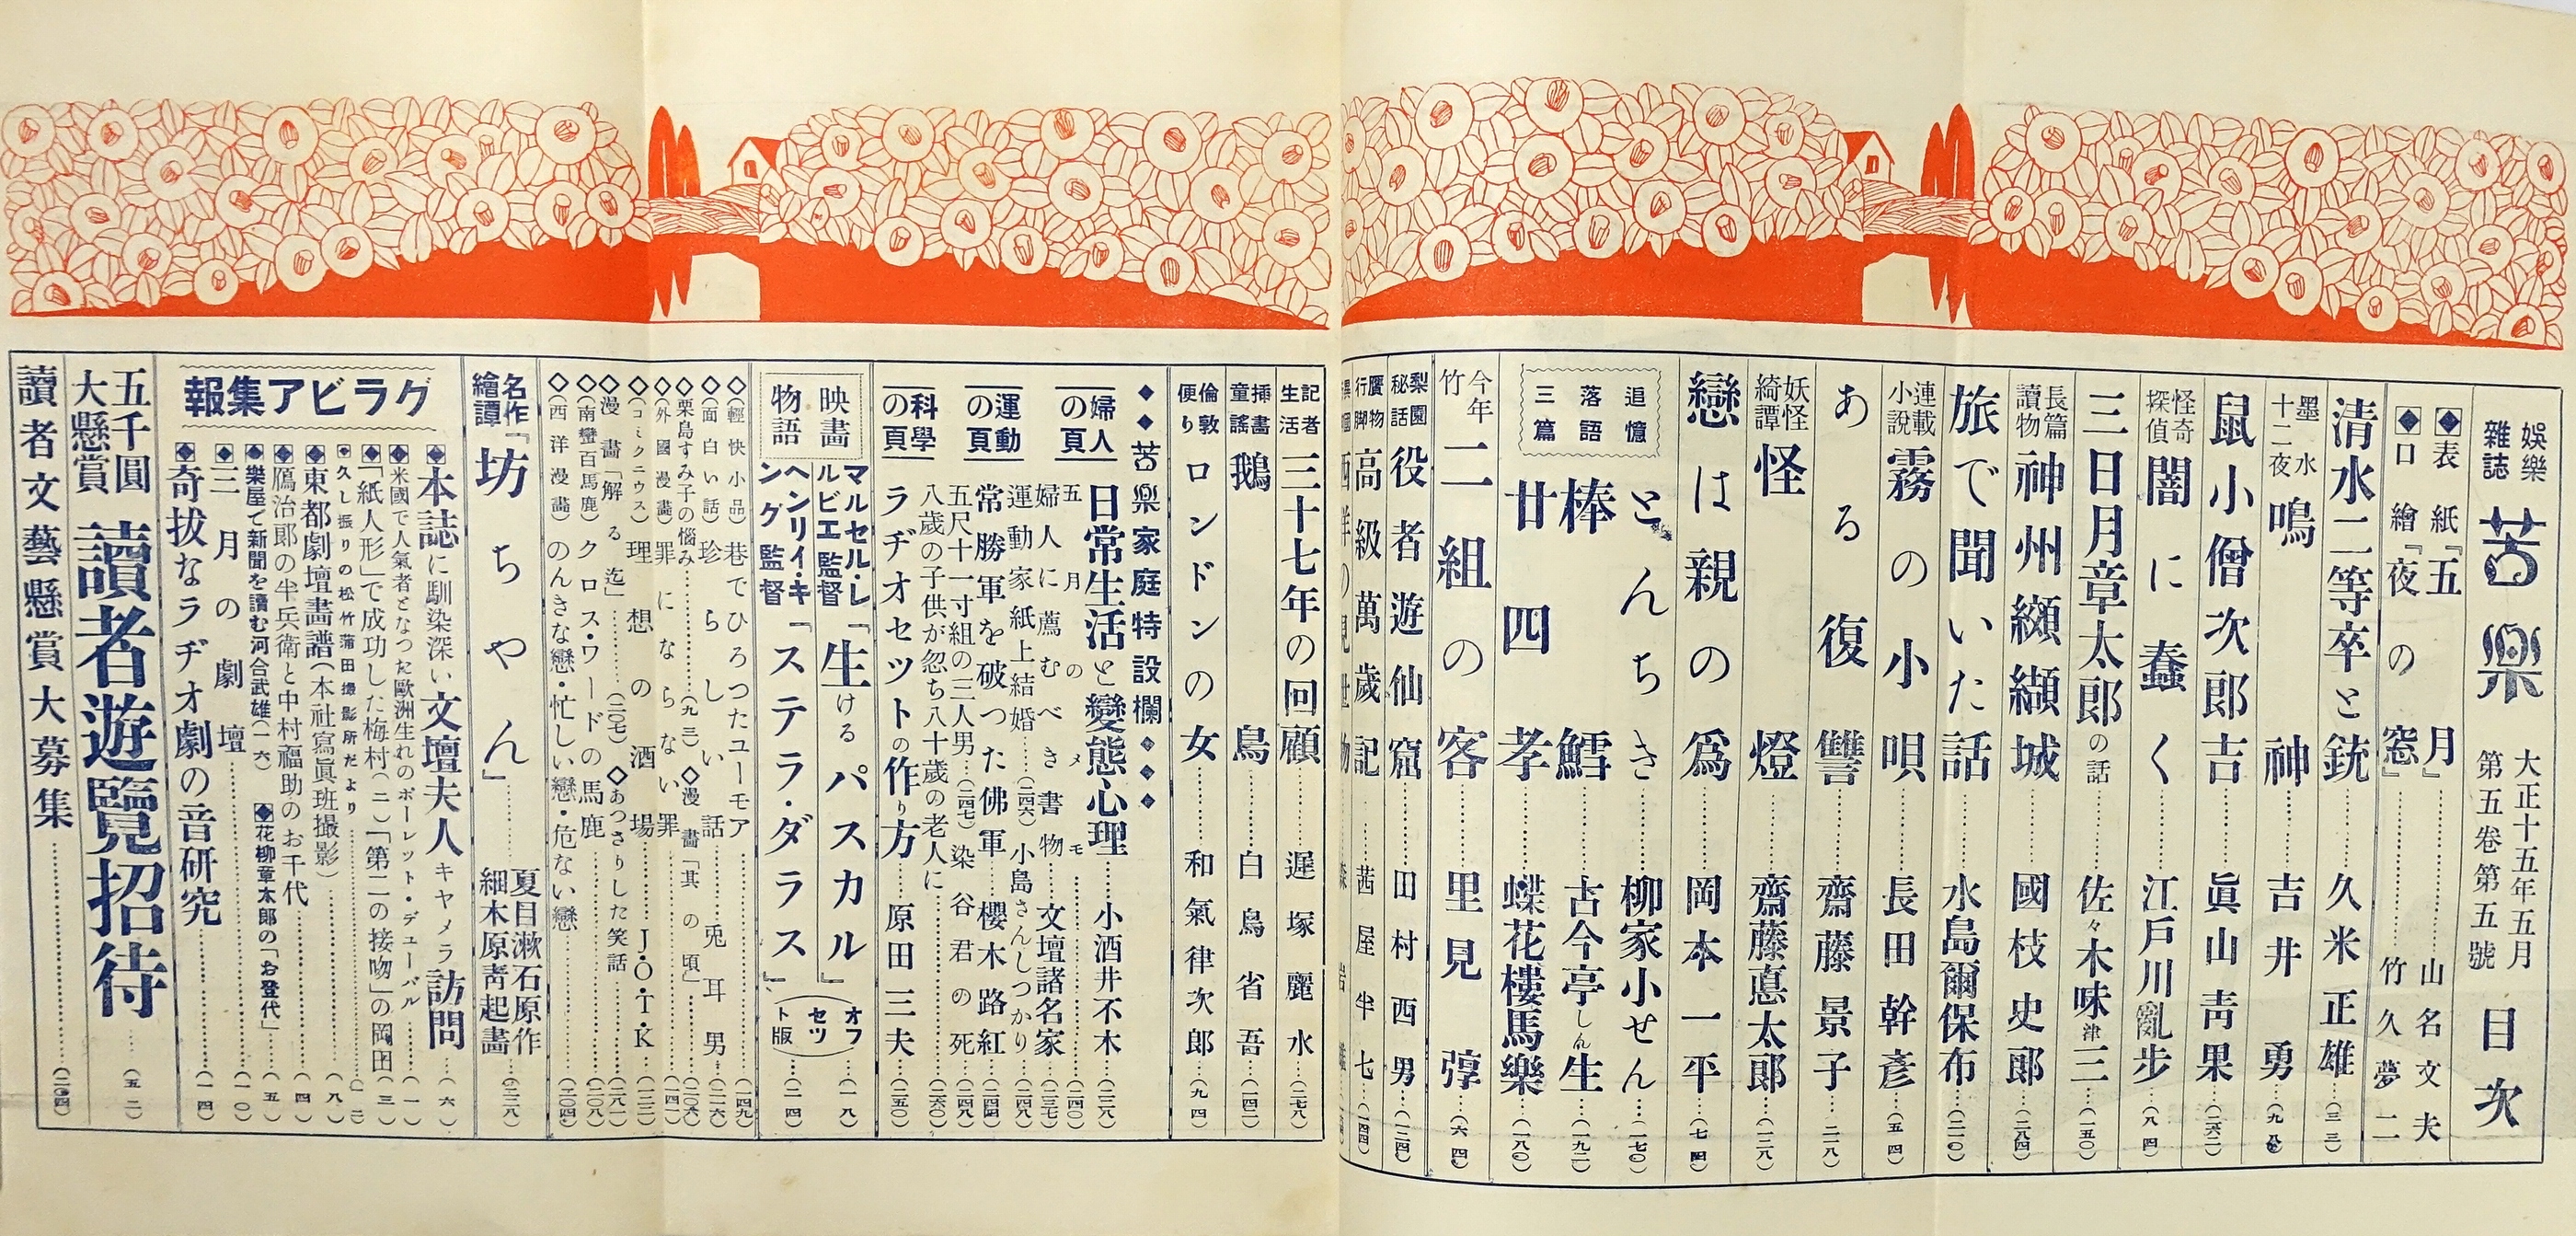 娯樂雜誌 苦樂 大正十五年五月 第五卷第五號 目次
◆表紙『五月』……山名文夫
◆口繪『夜の窓』……竹久夢二
清水二等卒と銃……久米正雄(三三)
墨水十二夜 鳴神……吉井勇
鼠小僧次郎吉……眞山靑果(二六二)
怪奇探偵 闇に蠢く……江戸川亂歩(八四)
三日月章太郎の話……佐々木味津三(一五〇)
長篇讀物 神州纐纈城……國枝史郎(二八四)
旅で聞いた話……水島爾保布(二一〇)
連載小說 霧の小唄……長田幹彥(五四)
ある復讐……齋藤景子(二一八)
妖怪綺譚 怪燈……齋藤悳太郎(一三八)
戀は親の爲……岡本一平(七四)
追憶落語三篇
とんちき……柳家小せん(一七〇)
棒鱈……古今亭しん生(一九二)
廿四孝……蝶花樓馬樂(一八〇)
今年竹 二組の客……里見弴(六四)
梨園秘話 役者遊仙窟……田村西男(一二四)
贋物行脚 高級萬歲記……茜屋半七(一四四)
記者生活 三十七年の回顧……遅塚麗水(二七八)
挿畫童謠 鵝鳥……白鳥省吾(一四二)
倫敦便り ロンドンの女……和氣律次郎(九四)
◆◆苦樂家庭特設欄◆◆◆
婦人の頁
日常生活と變態心理……小酒井不木(二三八)
五月のメモ……(二四〇)
婦人に薦むべき書物……文壇諸名家(二三七)
運動の頁
運動家紙上結婚……(二四六)小島さんしつかり……(二四八)
常勝軍を破つた佛軍……櫻木路紅(二四四)
五尺十一寸組の三人男……(二四七)染谷君の死……(二四九)
科學の頁
八歲の子供が忽ち八十歲の老人に……(二六〇)
ラヂオセットの作り方……原田三夫(二五〇)
映畫物語
マルセル・レルビエ監督『生けるパスカル』……(一八)
ヘンリイ・キング監督『ステラ・ダラス』(オフセット版)……(二四)
◇(輕快小品)巷でひろつたユーモア……(一四九)
◇(面白い話)珍らしい話……兎耳男……(二一六)
◇栗島すみ子の惱み……(九三)◇漫畫「其の頃」……(二〇六)
◇(外國漫畫)罪にならない罪……(二四一)
◇(コミクニウス)理想の酒場……J・O・T・K……(一二三)
◇漫畫「解る迄」……(二〇七)◇あつさりした笑話……(二八一)
◇(南蠻百馬鹿)クロス・ワードの馬鹿……(二〇九)
◇(西洋漫畫)のんきな戀・忙しい戀・危ない戀……(二〇四)
名作繪譚『坊ちやん』……夏目漱石原作 細木原靑起畫……(二二八)
グラビア集報
◆本誌に馴染深い文壇夫人キヤメラ訪問……(六)
◆米國で人氣者となつた歐洲生れのポーレット・デューバル……(一)
◆「紙人形」で成功した梅村(二)「第二の接吻」の岡田(三)
◆久し振りの松竹蒲田撮影所だより……
◆東都劇壇畫譜(本社寫眞班撮影)……(八)
◆鴈治郞の半兵衛と中村福助のお千代……(四)
◆樂屋で新聞を讀む河合武雄(一六)◆花柳章太郎の「お登代」……(五)
◆三月の劇壇……(一〇)
◆奇拔なラヂオ劇の音研究……(一四)
五千圓大懸賞 讀者遊覽招待……(五二)
讀者文藝懸賞大募集……(二〇四)